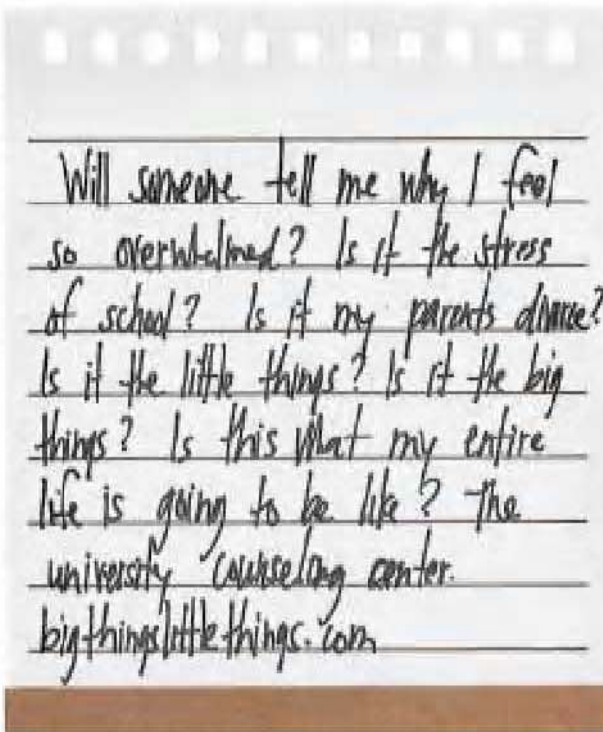 Will someone tell me why I feel
so overwhelmed? Is it the stress
of school? Is it my parents divorce?
Is it the little things? Is it the big
things? Is this what my entire
life is going to be like? The
university counseling center.
bigthingslittlethings.com